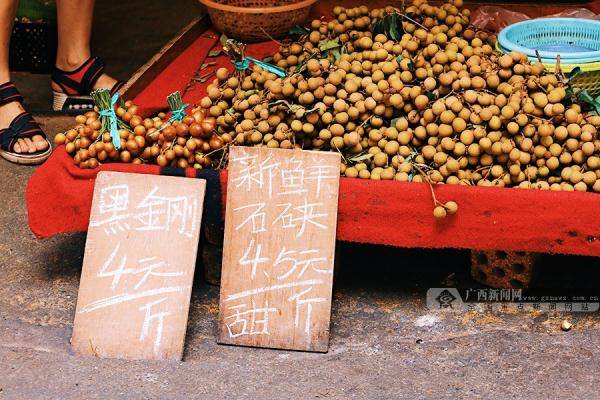 黑金刚
4元
斤
新鲜
石硖
4.5元
甜斤
广西新闻网
www.gxnews.com.cn